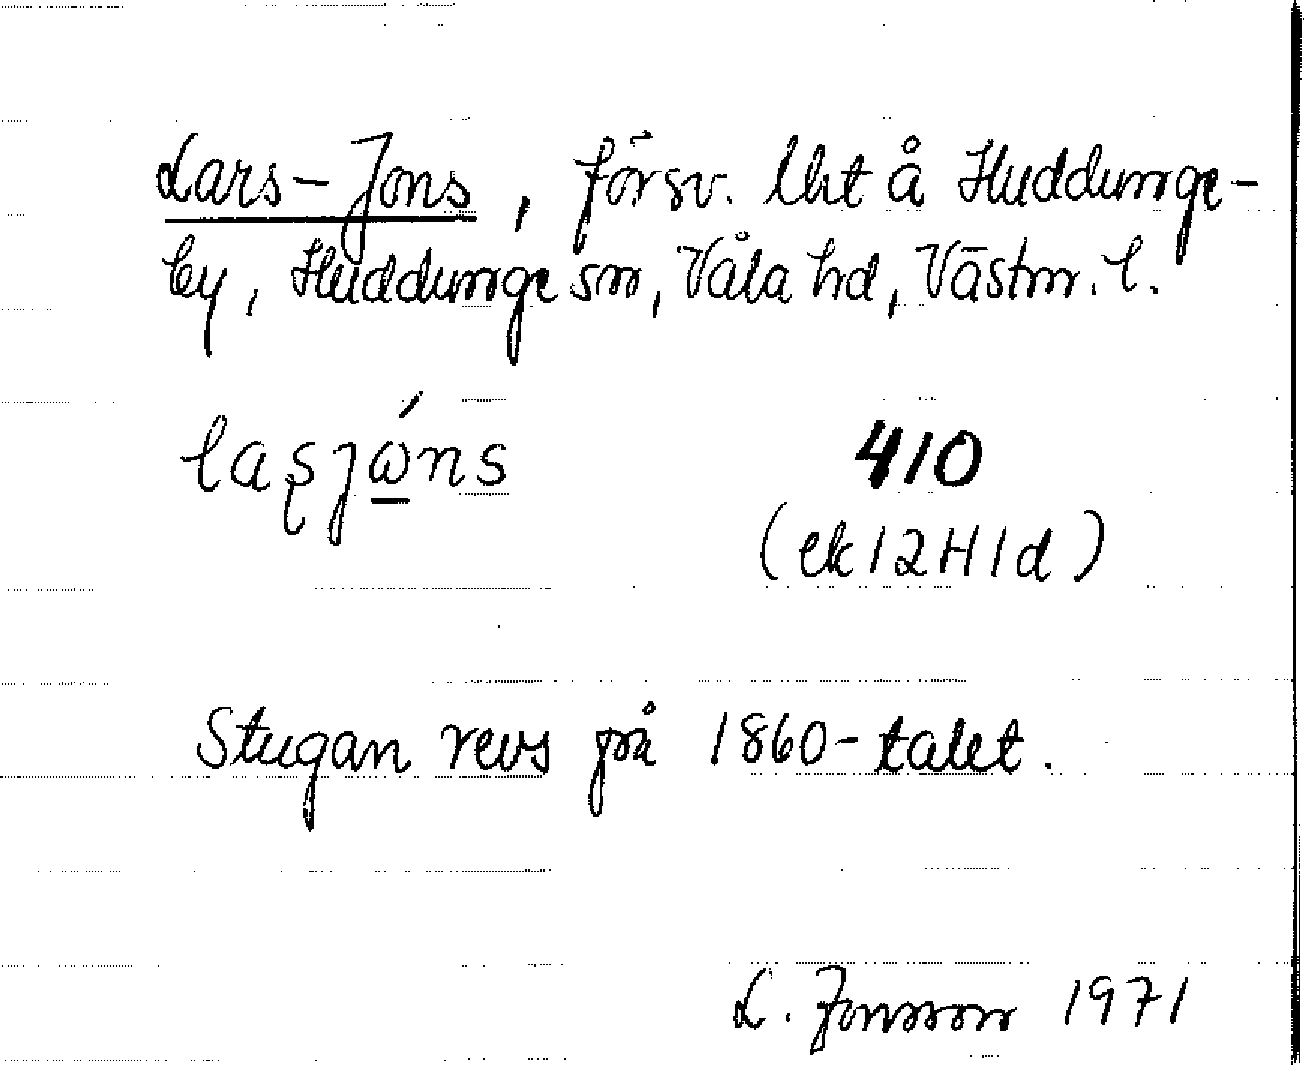 Lars-Jons, försv. lht å Huddunge-
by, Huddunge sn, Våla hd, Västm. l.
410
(ek 12H1d)
Stugan revs på 1860-talet.
L. Jonsson 1971